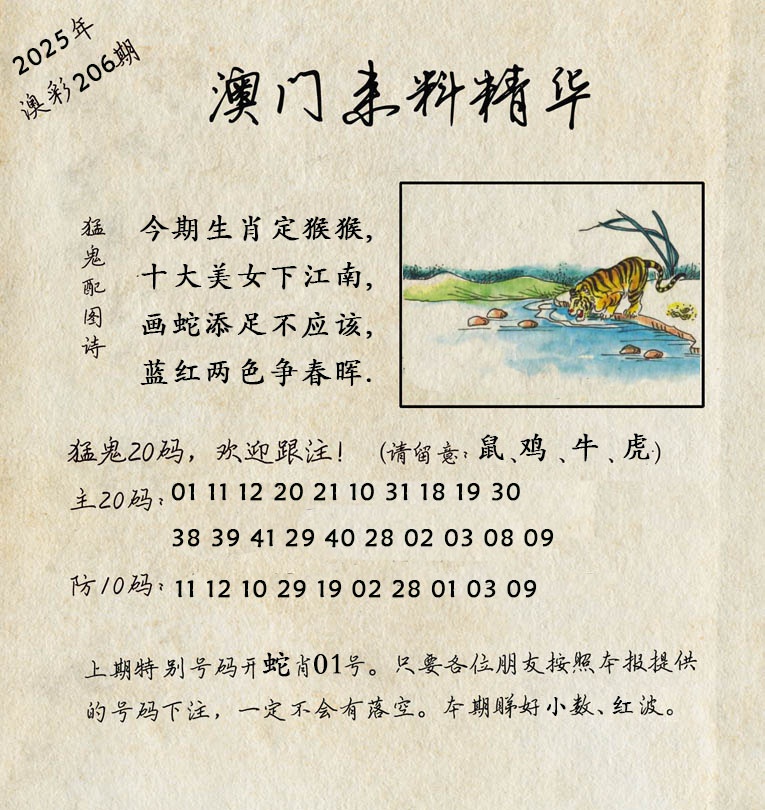 2025年
澳彩206期
澳门来料精华
猛鬼配图诗
今期生肖定猴猴,
十大美女下江南,
画蛇添足不应该,
蓝红两色争春晖.
猛鬼20码，欢迎跟注！ （请留意：鼠、鸡、牛、虎）
主20码：01 11 12 20 21 10 31 18 19 30
38 39 41 29 40 28 02 03 08 09
防10码：11 12 10 29 19 02 28 01 03 09
上期特别号码开蛇肖01号。只要各位朋友按照本报提供
的号码下注，一定不会有落空。本期睇好小数、红波。